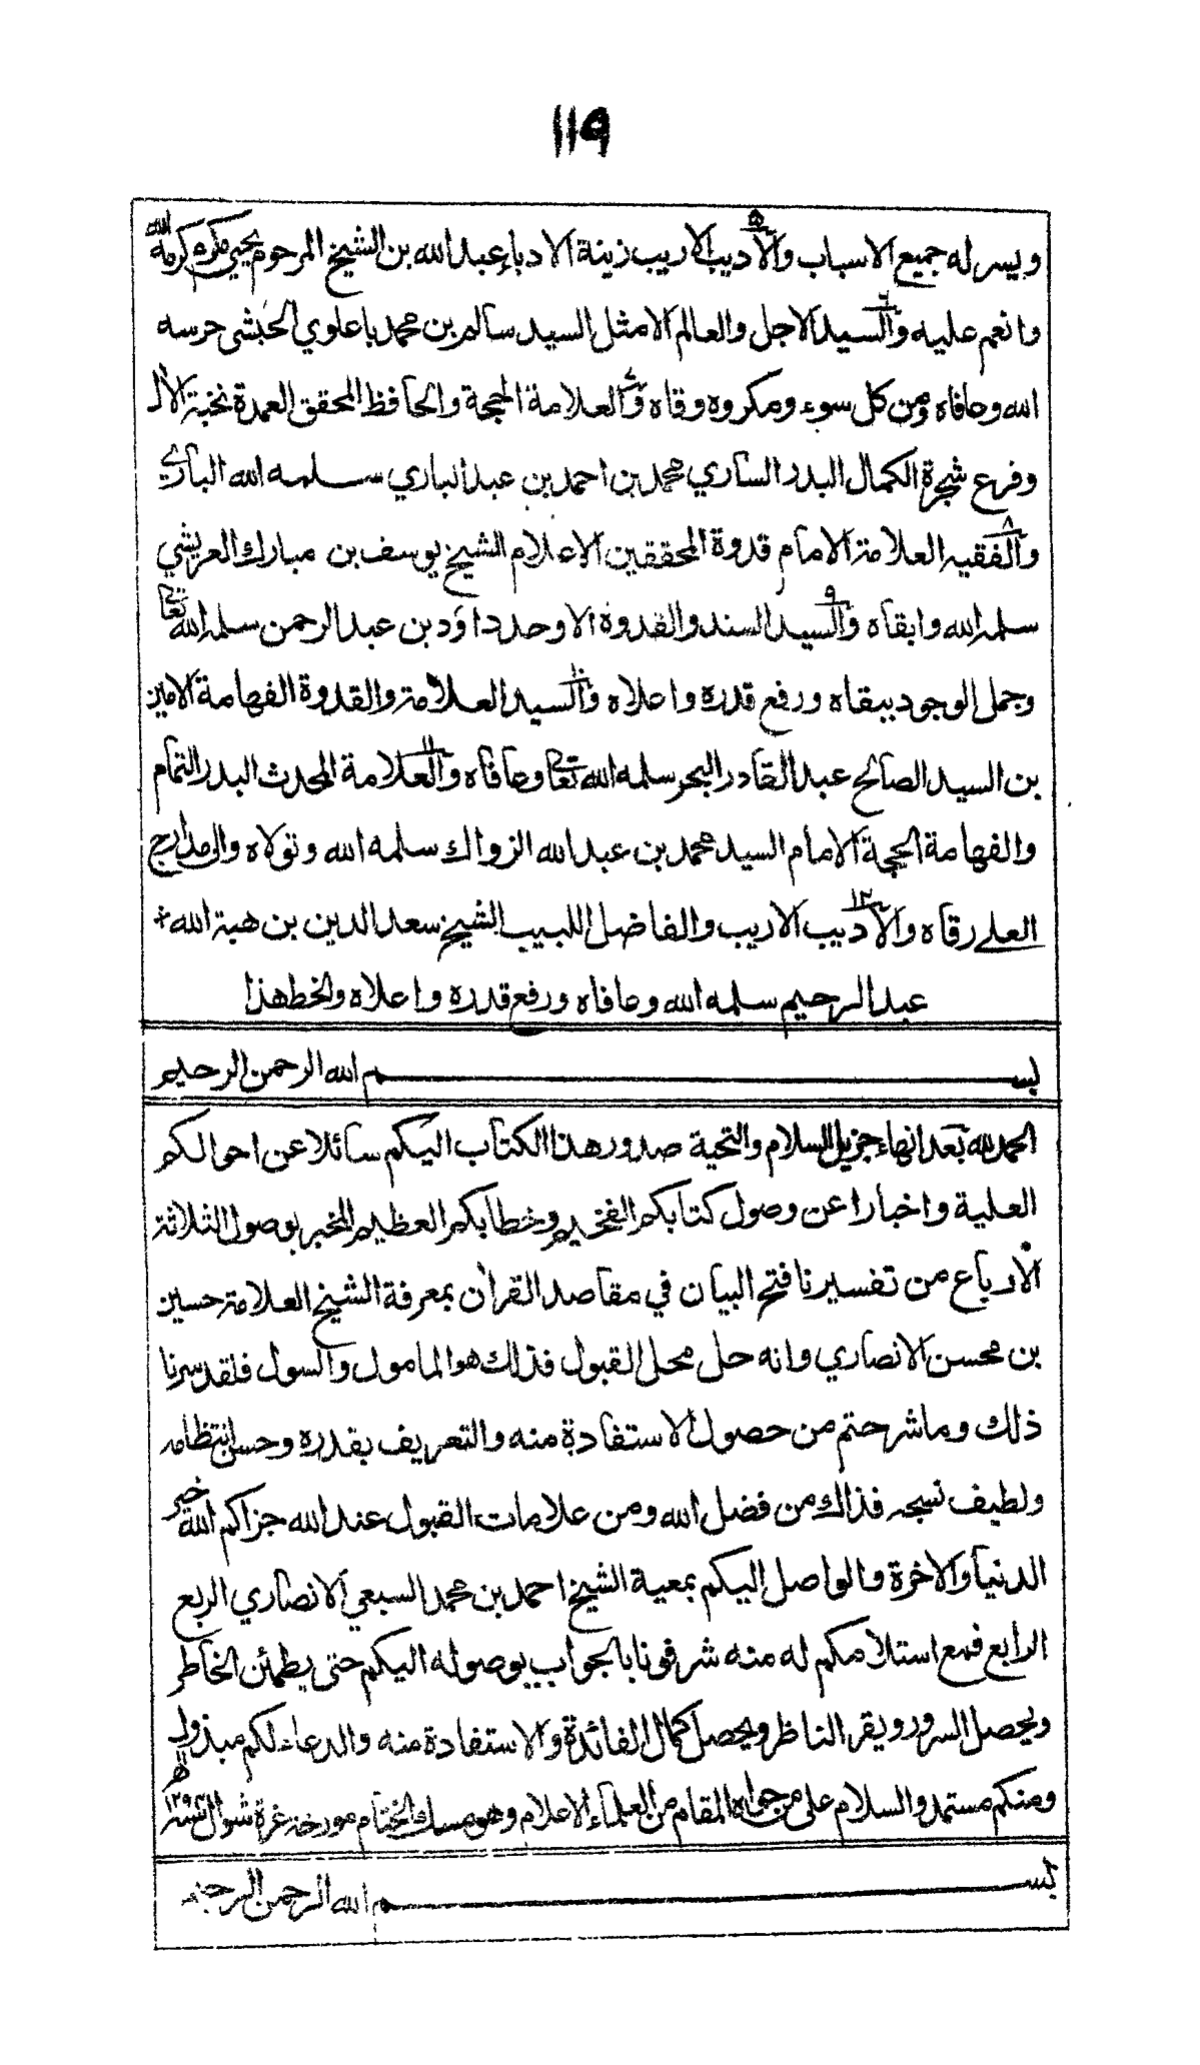 ١١٩
ويسر له جميع الاسباب والأديب الاريب زينة الادباء عبد الله بن الشيخ المرحوم يحيى مكرم كرمه الله
وانعم عليه والسيد الاجل والعالم الامثل السيد سالم بن محمد باعلوي الحبشى حرسه
الله وعافاه ومن كل سوء ومكروه وقاه والعلامة الحجة والحافظ المحقق العمدة نخبة الآل
وفرع شجرة الكمال البدر الساري محمد بن احمد بن عبد الباري سلمه الله الباري
والفقيه العلامة الامام قدوة المحققين الاعلام الشيخ يوسف بن مبارك العريشي
سلمه الله وابقاه والسيد السند والقدوة الاوحد داود بن عبد الرحمن سلمه الله تعالى
وجمل الوجود ببقاه ورفع قدره واعلاه والسيد العلامة والقدوة الفهامة الامين
بن السيد الصالح عبد القادر البحر سلمه الله تعالى وعافاه والعلامة المحدث البدر التمام
والفهامة الحجة الامام السيد محمد بن عبد الله الزواك سلمه الله وتولاه والى مدارج
العلى رقاه والأديب الاريب والفاضل اللبيب الشيخ سعد الدين بن هبة الله
عبد الرحيم سلمه الله وعافاه ورفع قدره واعلاه والخط هذا
بسم الله الرحمن الرحيم
الحمد لله بعد انهاء جزيل السلام والتحية صدور هذا الكتاب اليكم سائلا عن احوالكم
العلية واخبارا عن وصول كتابكم الفخيم وخطابكم العظيم المخبر بوصول الثلاثة
الارباع من تفسيرنا فتح البيان في مقاصد القرآن بمعرفة الشيخ العلامة حسين
بن محسن الانصاري وانه حل محل القبول فذلك هو المامول والسول فلقد سرنا
ذلك وما شرحتم من حصول الاستفادة منه والتعريف بقدره وحسن انتظامه
ولطيف نسجه فذاك من فضل الله ومن علامات القبول عند الله جزاكم الله خير
الدنيا والاخرة والواصل اليكم بمعية الشيخ احمد بن محمد السبعي الانصاري الربع
الرابع فمع استلامكم له منه شرفونا بالجواب بوصوله اليكم حتى يطمئن الخاطر
ويحصل السرور ويقر الناظر ويحصل كمال الفائدة والاستفادة منه والدعاء لكم مبذول
ومنكم مستمد والسلام على من حواه المقام من العلماء الاعلام وهو مسك الختام مورخة غرة شوال سنة ١٢٩٢ ھ
بسم الله الرحمن الرحيم